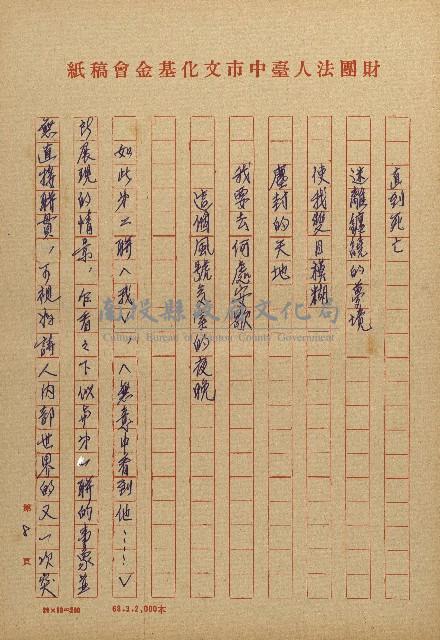 財團法人臺中市文化基金會稿紙
直到死亡
迷離纏繞的夢境
使我雙目模糊
塵封的天地
我要去何處安歇
這個風號氣塞的夜晚
如此第二聯〈我〉〈無意中看到他……〉
所展現的情景，乍看之下似與第一聯的事象並
無直接聯貫，可視為詩人內部世界的又一次突
第8頁
南投縣政府文化局
Cultural Bureau of Nantou County Government
68.3.2,000本